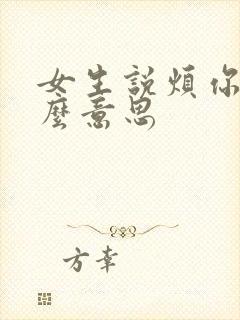 女生説煩你
麼意思
方幸